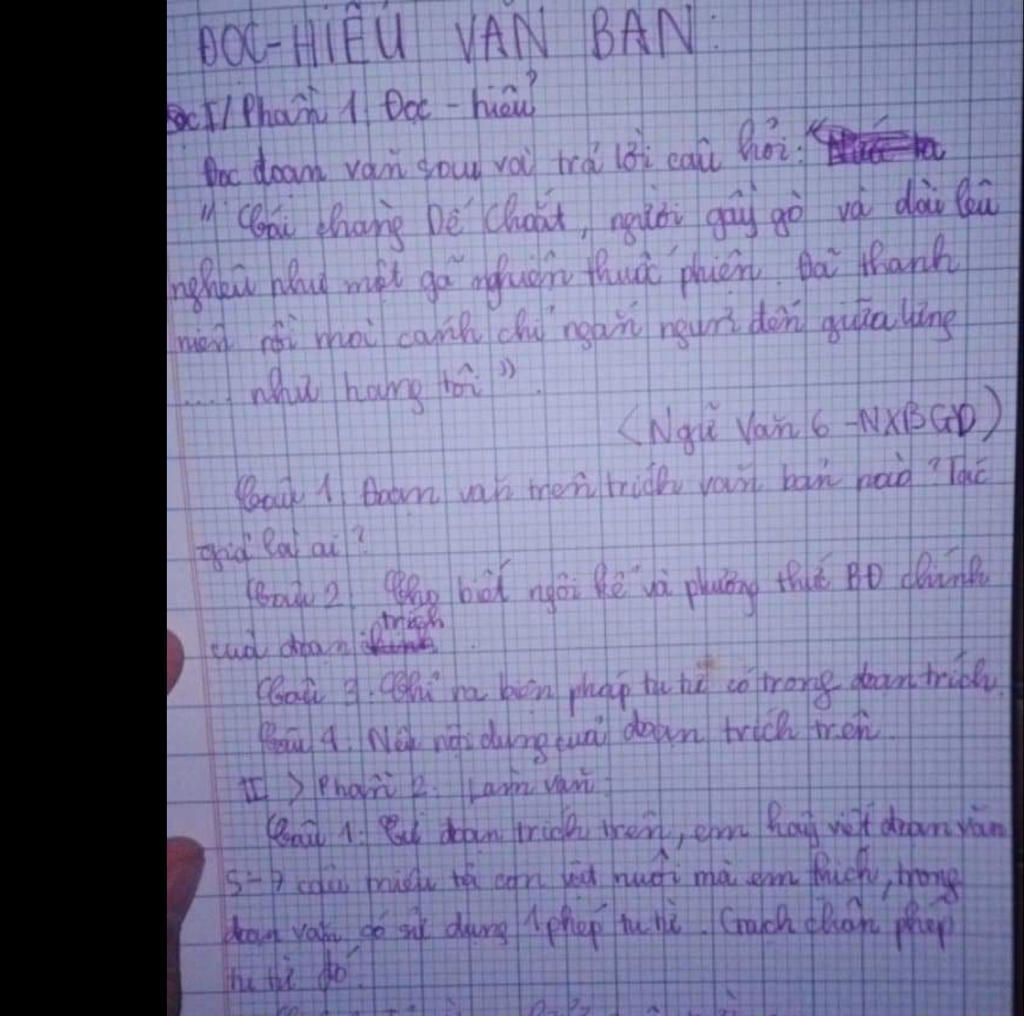 ĐỌC-HIỂU VĂN BẢN:
I/ Phần 1, Đọc - hiểu
Đọc đoạn văn sau và trả lời câu hỏi: "
" Cái chàng Dế Choắt, người gầy gò và dài lêu
nghêu như một gã nghiện thuốc phiện. Đã thanh
niên rồi mà cánh chỉ ngắn ngủn đến giữa lưng
.... như hang tôi".
(Ngữ Văn 6 -NXBGD)
Câu 1, Đoạn văn trên trích văn bản nào? Tác
giả là ai?
Câu 2, Cho biết ngôi kể và phương thức BĐ chính
của đoạn trích.
Câu 3. Chỉ ra biện pháp tu từ có trong đoạn trích.
Câu 4. Nêu nội dung của đoạn trích trên.
II > Phần 2. Làm văn:
Câu 1: Từ đoạn trích trên, em hãy viết đoạn văn
5-7 câu miêu tả con vật nuôi mà em thích, trong
đoạn văn có sử dụng 1 phép tu từ. Gạch chân phép
tu từ đó.